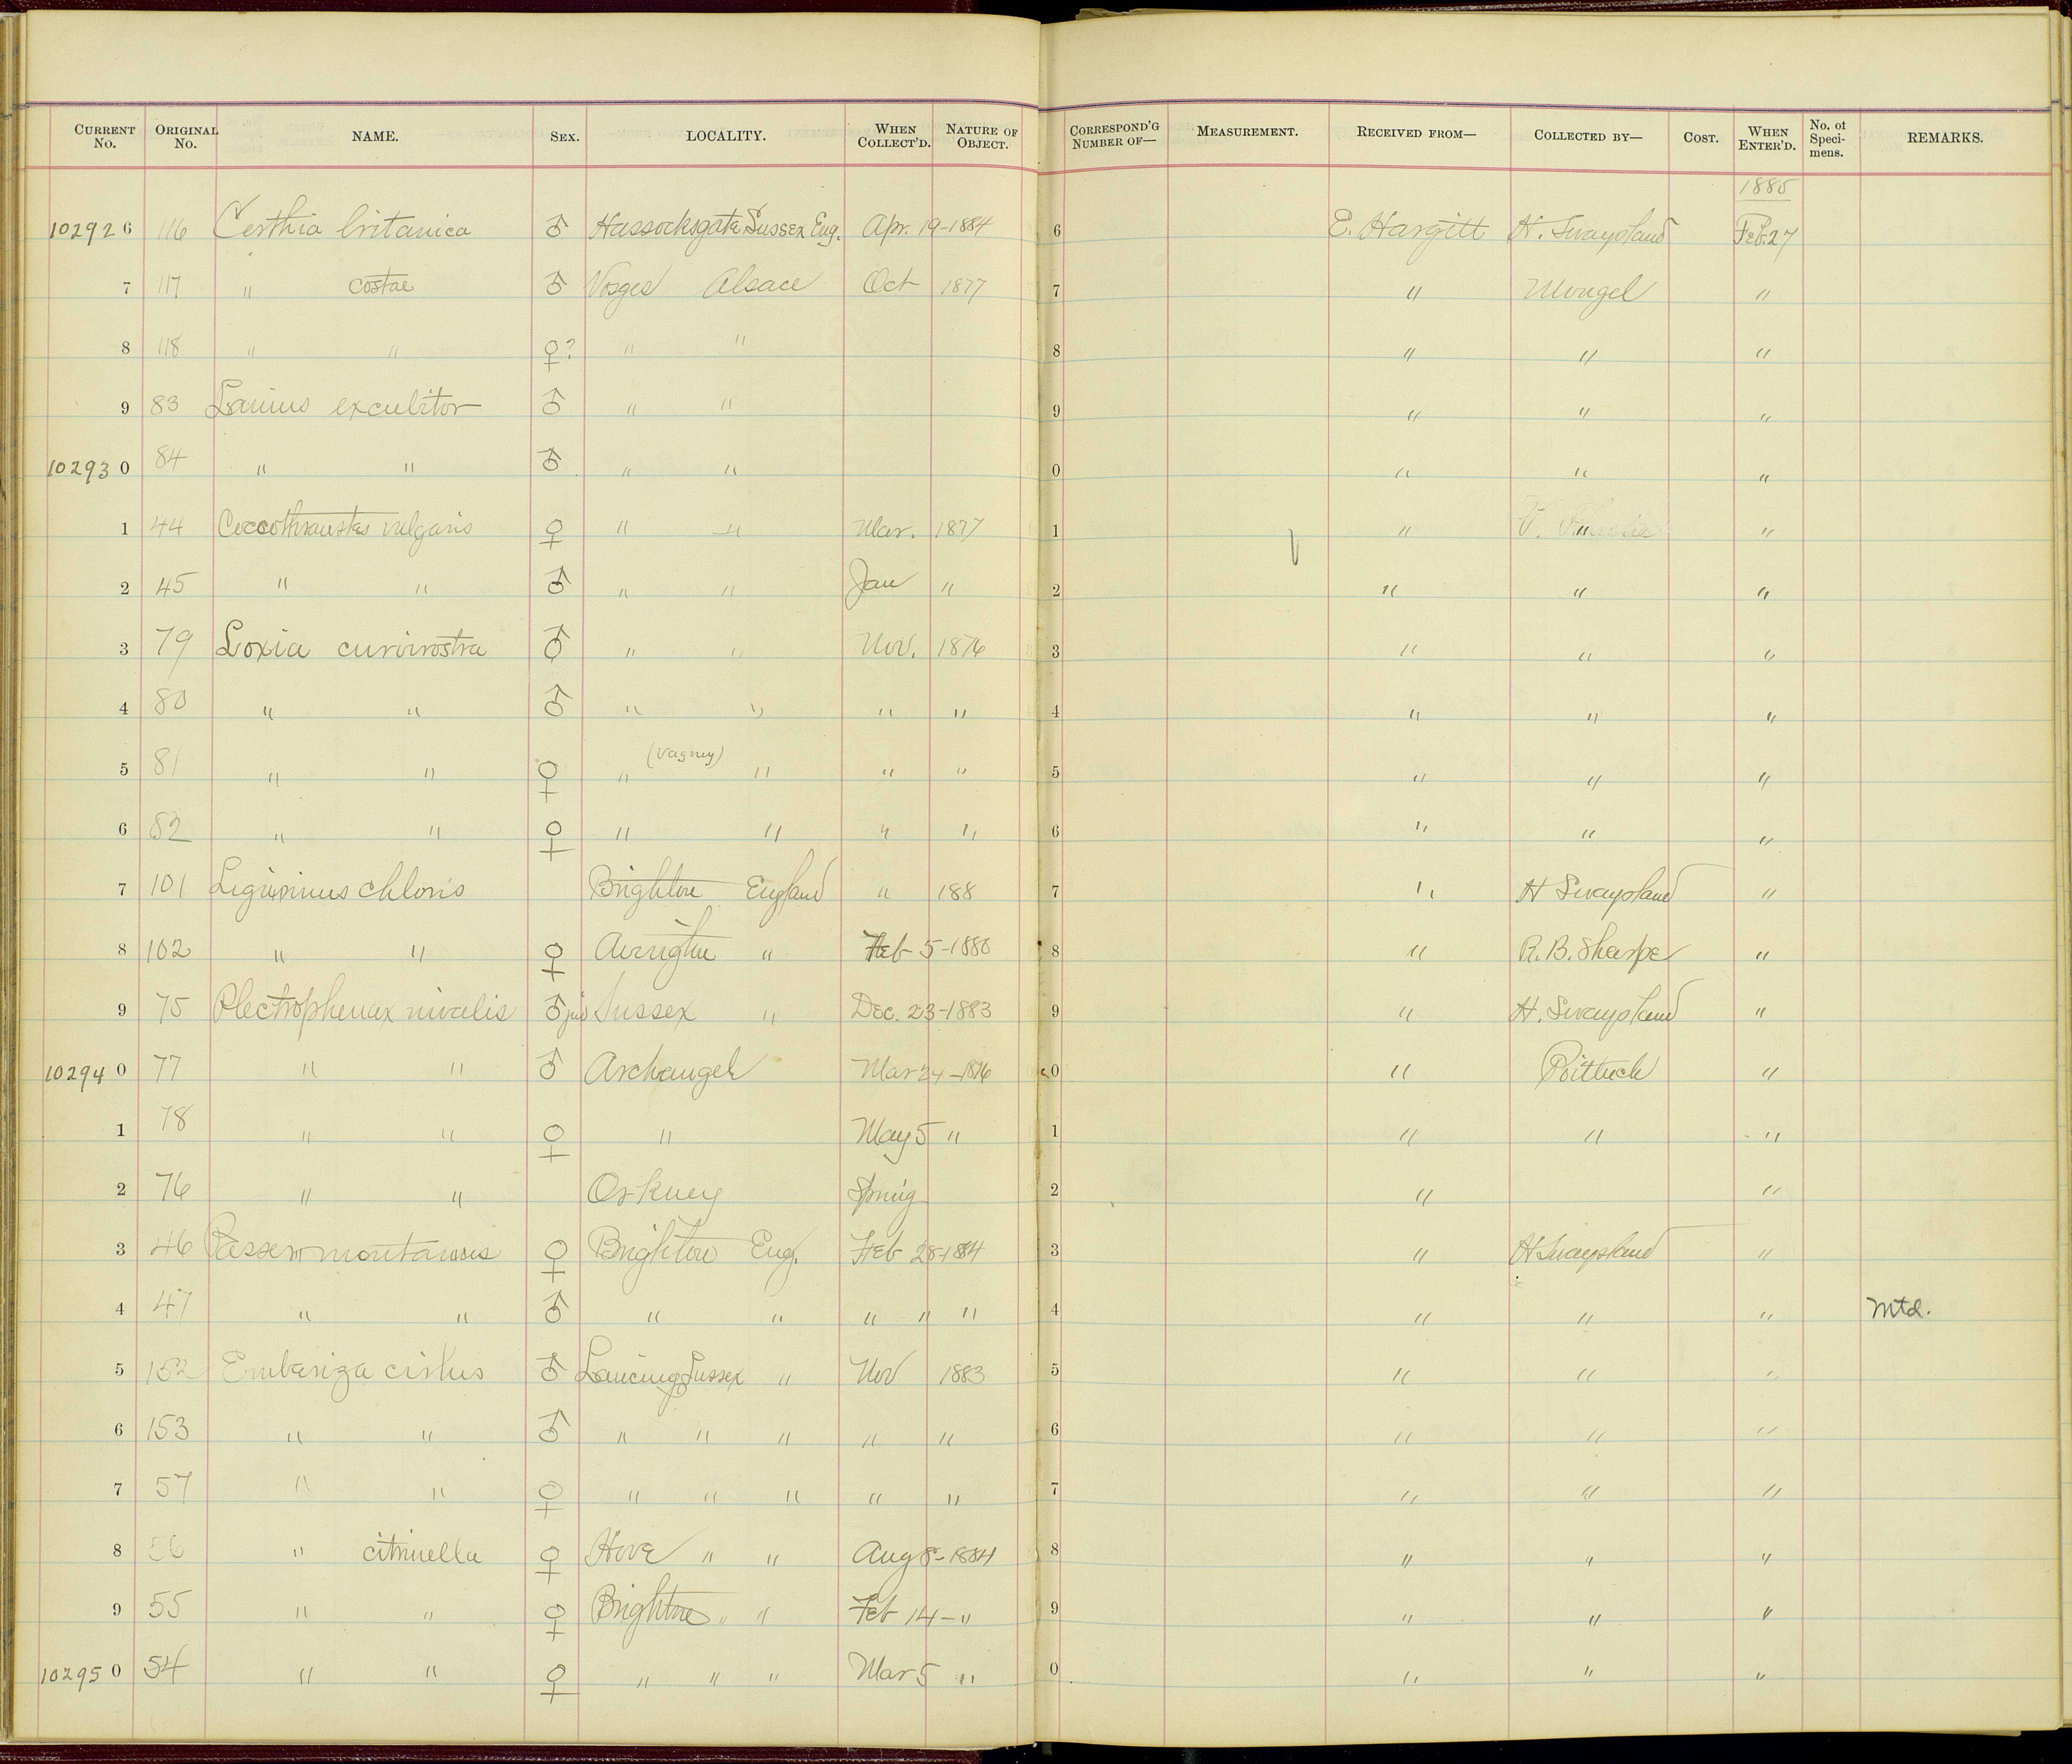 CURRENT No. ORIGINAL No. NAME. SEX. LOCALITY. WHEN COLLECT'D. NATURE OF OBJECT. CORRESPOND'G NUMBER OF— MEASUREMENT. RECEIVED FROM— COLLECTED BY— COST. WHEN ENTER'D. No. of Speci-mens. REMARKS.
1885
102926 116 Certhia britanica ♂ Hassocksgate Sussex Eng. Apr. 19-1884 6 E. Hargitt H. Swaysland Feb. 27
7 117 " costae ♂ Vosges Alsace Oct 1877 7 " Mougel "
8 118 " " ♀? " " 8 " " "
9 83 Lanius excubitor ♂ " " 9 " " "
102930 84 " " ♂ " " 0 " " "
1 44 Coccothraustes vulgaris ♀ " " Mar. 1877 1 " " "
2 45 " " ♂ " " Jan " 2 " " "
3 79 Loxia curvirostra ♂ " " Nov. 1876 3 " " "
4 80 " " ♂ " " " " 4 " " "
(Vagney)
5 81 " " ♀ " " " " 5 " " "
6 82 " " ♀ " " " " 6 " " "
7 101 Ligurinus chloris Brighton England " 188 7 " H Swaysland "
8 102 " " ♀ " Feb 5-1880 8 " R. B. Sharpe "
9 75 Plectrophenax nivalis ♂ juv Sussex " Dec. 23-1883 9 " H. Swaysland "
102940 77 " " ♂ Archangel Mar 24-1876 0 " Poittuck "
1 78 " " ♀ " May 5 " 1 " " "
2 76 " " Orkney Spring 2 " "
3 46 Passer montanus ♀ Brighton Eng. Feb 28-184 3 " H Swaysland "
4 47 " " ♂ " " " " " 4 " " " Mtd.
5 152 Emberiza cirlus ♂ Lancing Sussex " Nov 1883 5 " " "
6 153 " " ♂ " " " " " 6 " " "
7 57 " " ♀ " " " " " 7 " " "
8 56 " citrinella ♀ Hove " " Aug 8-1884 8 " " "
9 55 " " ♀ Brighton " " Feb 14-" 9 " " "
102950 54 " " ♀ " " " Mar 5 " 0 " " "